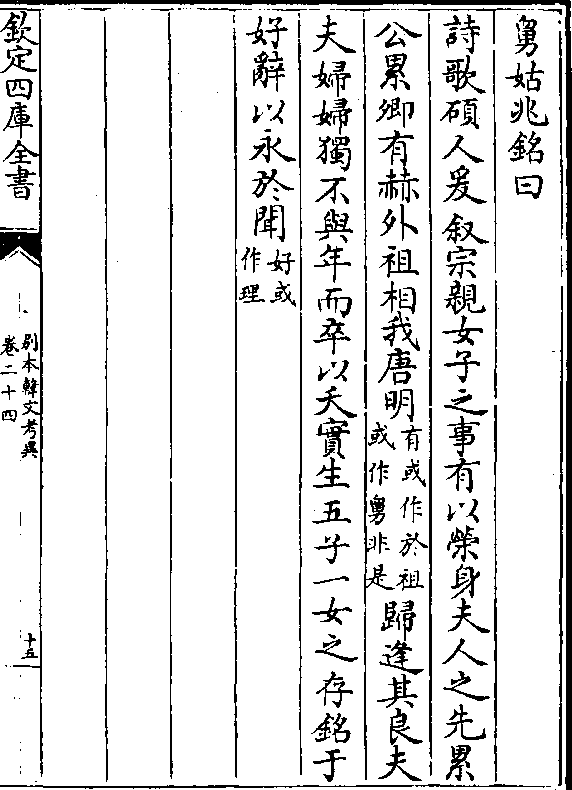 舅姑兆銘曰
詩歌碩人爰叙宗親女子之事有以榮身夫人之先累
公累卿有赫外祖相我唐明有或作於祖或作舅非是歸逢其良夫
夫婦婦獨不與年而卒以夭實生五子一女之存銘于
好辭以永於聞好或作理
欽定四庫全書
別本韓文考異
卷二十四
十五